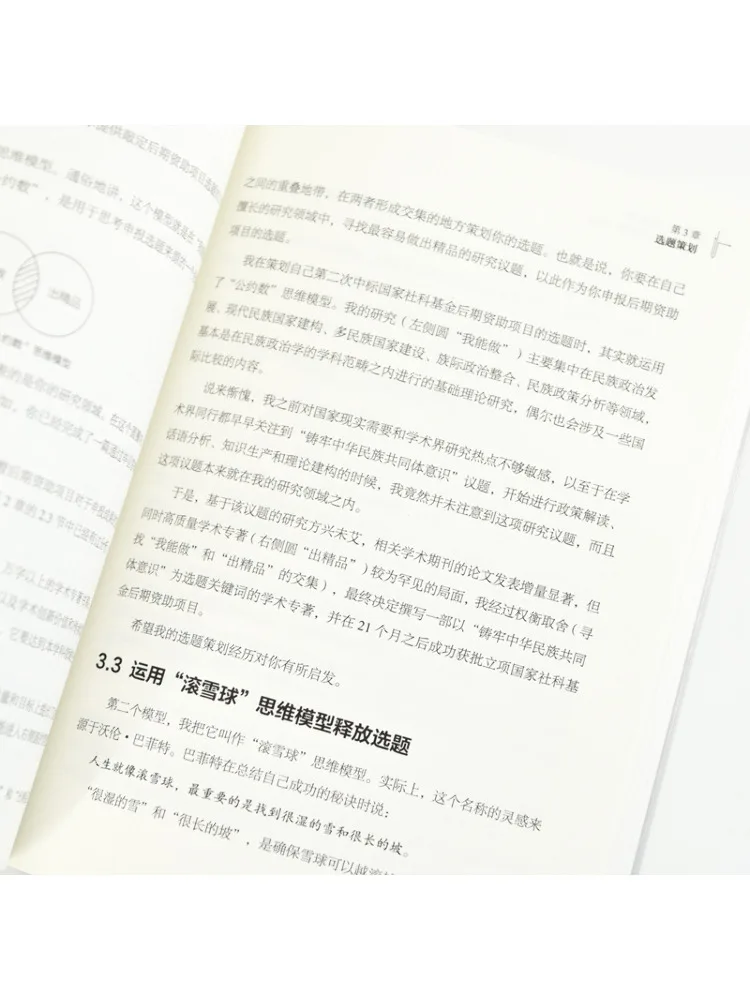 提供敲定后期资助项目选题
思维模型。通俗地讲，这个模型就是由
公约数”，是用于思考申报选题来源的一
出精品
公约数”思维模型
的是你的研究领域。在这个
知，你已经完成了一篇
后期资助项目对于申报成
2 章的 2.3 节中已经
万字以上的学术专著
第 3 章
选题策划
之间的重叠地带。在两者形成交集的地方策划你的选题。也就是说，你要在自己
擅长的研究领域中，寻找最容易做出精品的研究议题，以此作为你申报后期资助
项目的选题。
我在策划自己第二次中标国家社科基金后期资助项目的选题时，其实就运用
了“公约数”思维模型。我的研究（左侧圆“我能做”）主要集中在民族政治发
展、现代民族国家建构、多民族国家建设、族际政治整合、民族政策分析等领域，
基本是在民族政治学的学科范畴之内进行的基础理论研究，偶尔也会涉及一些国
际比较的内容。
说来惭愧，我之前对国家现实需要和学术界研究热点不够敏感，以至于在学
术界同行都早早关注到“铸牢中华民族共同体意识”议题，开始进行政策解读、
话语分析、知识生产和理论建构的时候，我竟然并未注意到这项研究议题，而且
这项议题本来就在我的研究领域之内。
于是，基于该议题的研究方兴未艾，相关学术期刊的论文发表增量显著，但
同时高质量学术专著（右侧圆“出精品”）较为罕见的局面，我经过权衡取舍（寻
找“我能做”和“出精品”的交集），最终决定撰写一部以“铸牢中华民族共同
体意识”为选题关键词的学术专著，并在 21 个月之后成功获批立项国家社科基
金后期资助项目。
希望我的选题策划经历对你有所启发。
3.3 运用“滚雪球”思维模型释放选题
第二个模型，我把它叫作“滚雪球”思维模型。实际上，这个名称的灵感来
源于沃伦·巴菲特。巴菲特在总结自己成功的秘诀时说：
人生就像滚雪球，最重要的是找到很湿的雪和很长的坡。
“很湿的雪”和“很长的坡”，是确保雪球可以越滚